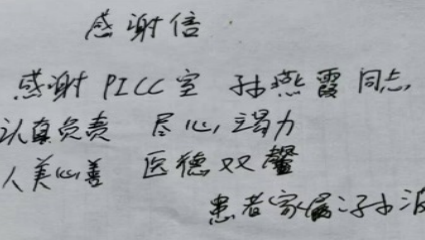 感谢信
感谢 PICC室 孙燕霞 同志,
认真负责 尽心,竭力
人美心善 医德双馨
患者家属:孙波